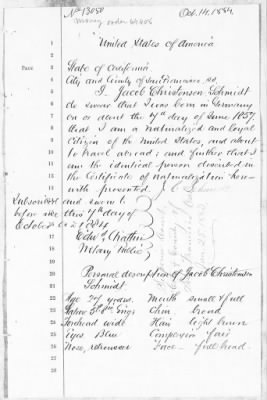 No 13050
Oct. 14, 1884.
Money order
1
"United States of America
2
3
FACE
4
State of California
5
City and County of San Francisco, ss.
6
I, Jacob Christenson Schmidt
7
do swear that I was born in Germany
8
on or about the 7th day of June 1857,
9
that I am a naturalized and loyal
10
Citizen of the United States, and about
11
to travel abroad; and further that I
12
am the identical person described in
13
the Certificate of naturalization here-
14
with presented.
15
Subscribed and sworn to
16
before me this 7th day of
17
October A.D. 1884
18
Notary Public
19
20
Personal description of Jacob Christenson
21
Schmidt
22
Age 27 years. Mouth small & full
23
Chin broad
24
Forehead wide Hair light brown
25
Eyes Blue Complexion fair
26
Nose, Face full
27
28